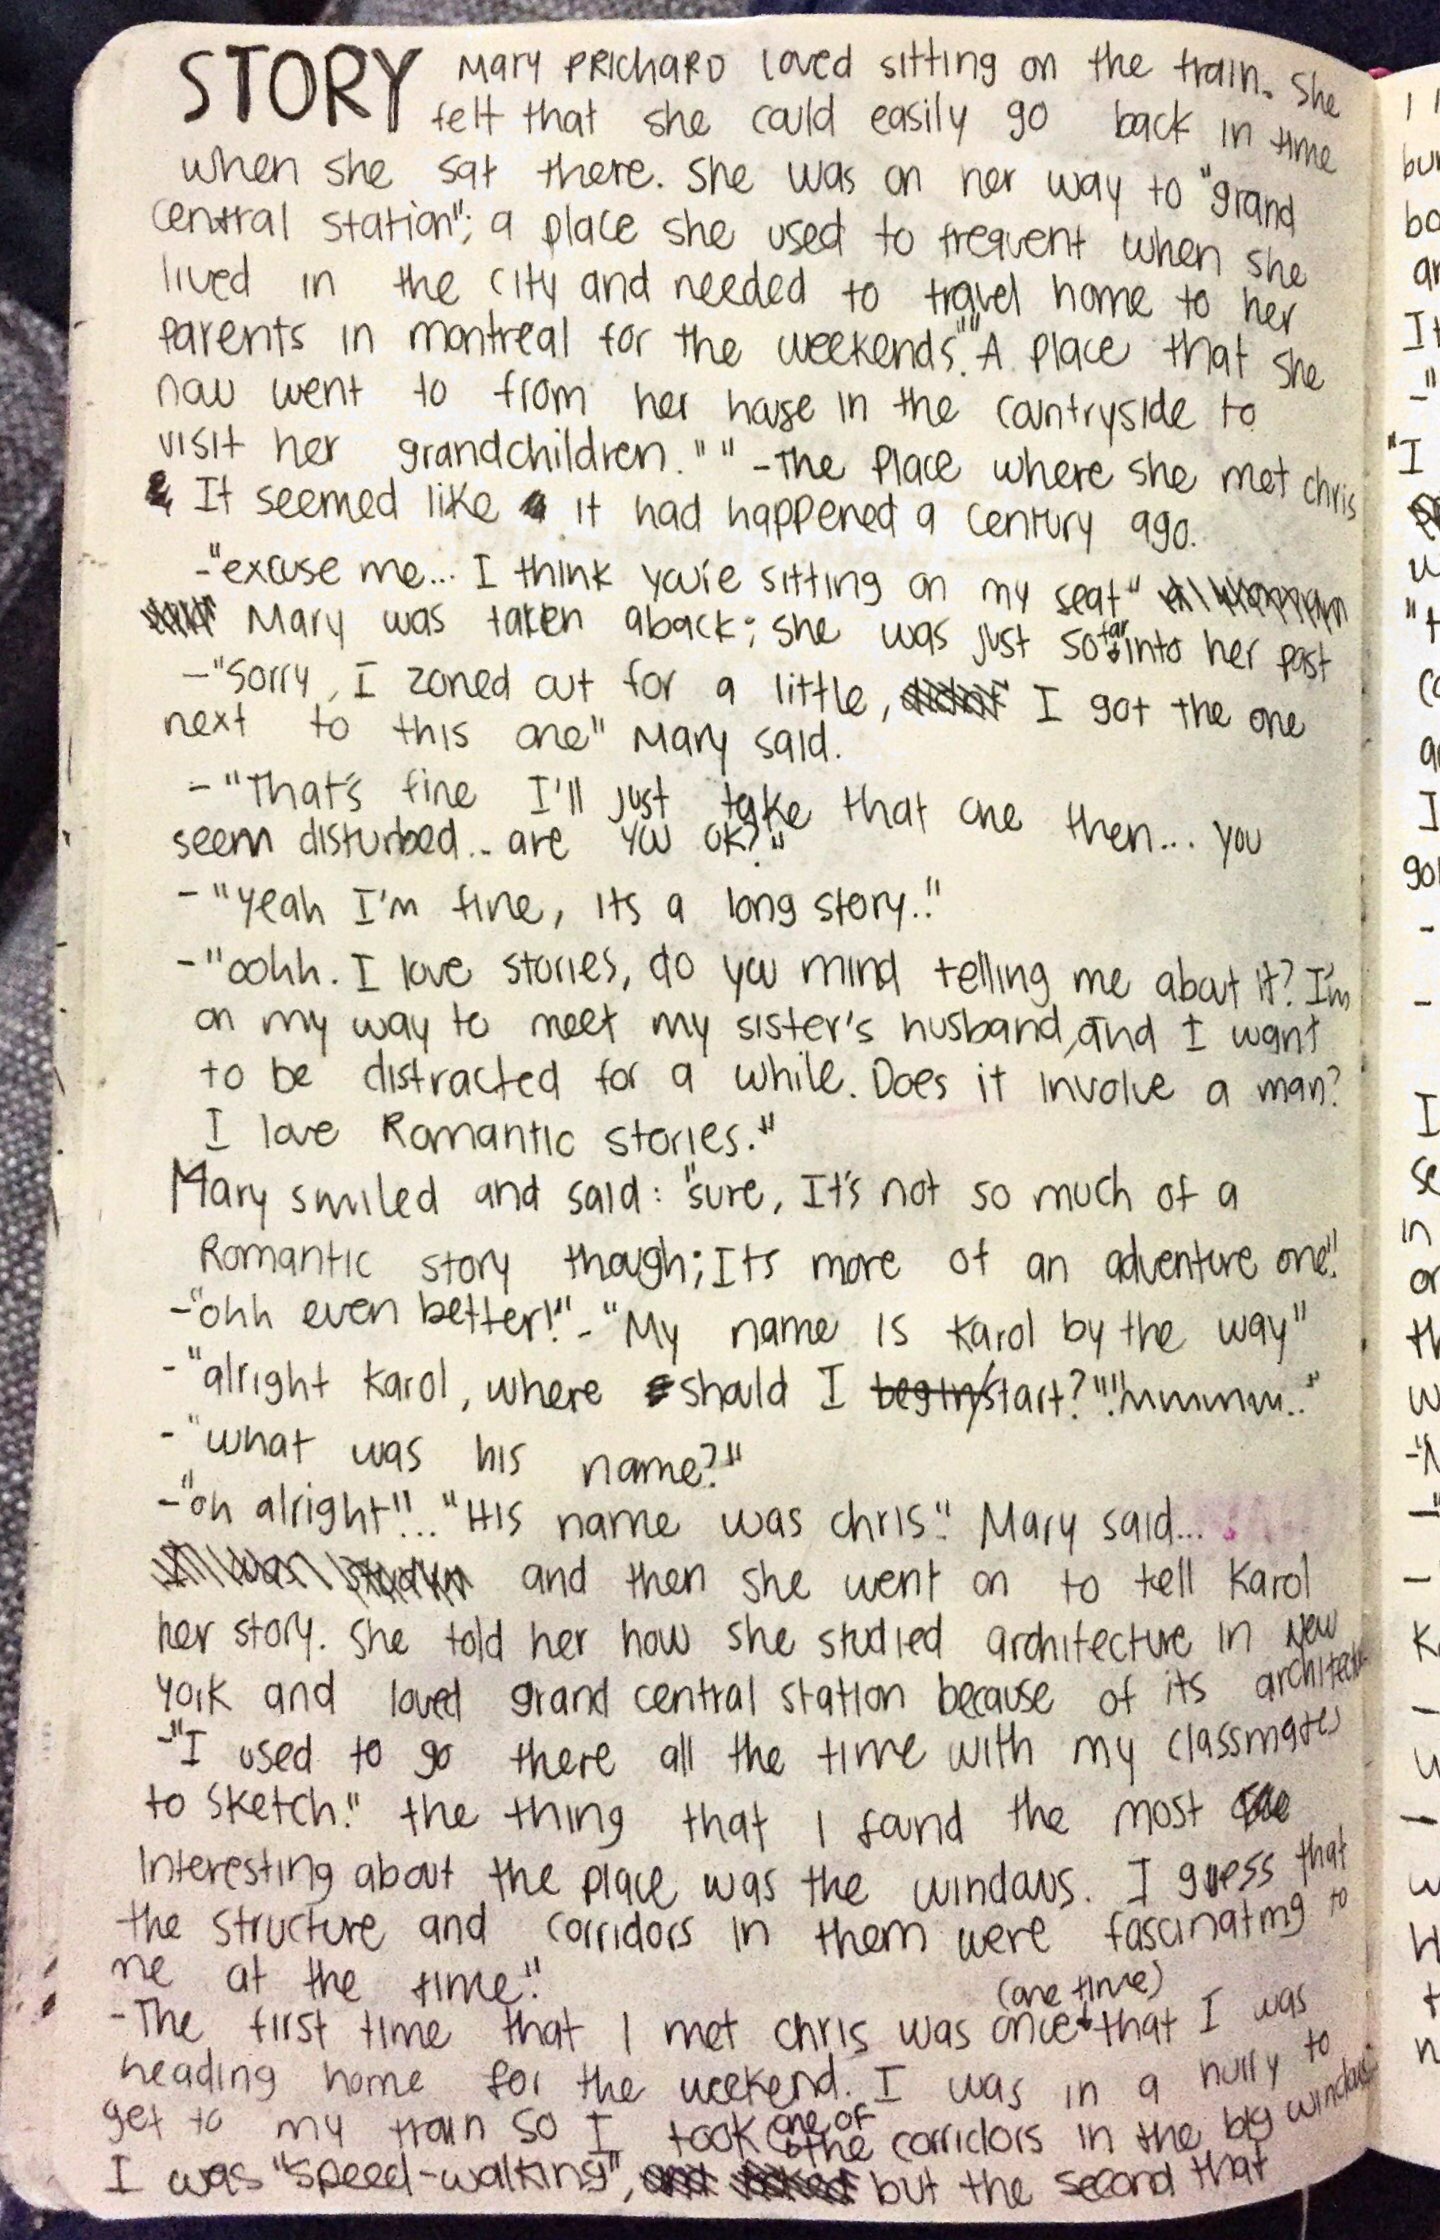 STORY Mary PRichaRD loved sitting on the train. She
felt that she could easily go back in time
when she sat there. She was on her way to "grand
central station"; a place she used to frequent when she
lived in the city and needed to travel home to her
parents in montreal for the weekends."" A place that she
now went to from her house in the countryside to
visit her grandchildren." " -The place where she met chris
It seemed like it had happened a century ago.
-"excuse me... I think you're sitting on my seat"
Mary was taken aback; she was just so far into her past
-"Sorry, I zoned out for a little, I got the one
next to this one" Mary said.
- "That's fine I'll just take that one then... you
seem disturbed.. are you ok?"
- "Yeah I'm fine, its a long story.."
- "oohh. I love stories, do you mind telling me about it? I'm
on my way to meet my sister's husband, and I want
to be distracted for a while. Does it involve a man?
I love Romantic stories."
Mary smiled and said: "sure, It's not so much of a
Romantic story though; Its more of an adventure one"
-"ohh even better!" - "My name is Karol by the way"
-"alright Karol, where should I begin/start?" "mmmm.."
- "what was his name?"
-"oh alright"... "His name was chris." Mary said...
and then she went on to tell Karol
her story. She told her how she studied architecture in New
York and loved grand central station because of its architectu
-"I used to go there all the time with my classmates
to sketch." the thing that I found the most
interesting about the place was the windows. I guess that
the structure and corridors in them were fascinating to
me at the time."
(one time)
-The first time that I met chris was once that I was
heading home for the weekend. I was in a hurry to
get to my train so I took one of the corridors in the big windows
I was "speed-walking", but the second that
1
bu
bo
an
It
-"
"I
u
"t
co
I
-
-
I
se
in
or
th
w
-
-
K
-
-
w
H
t
n